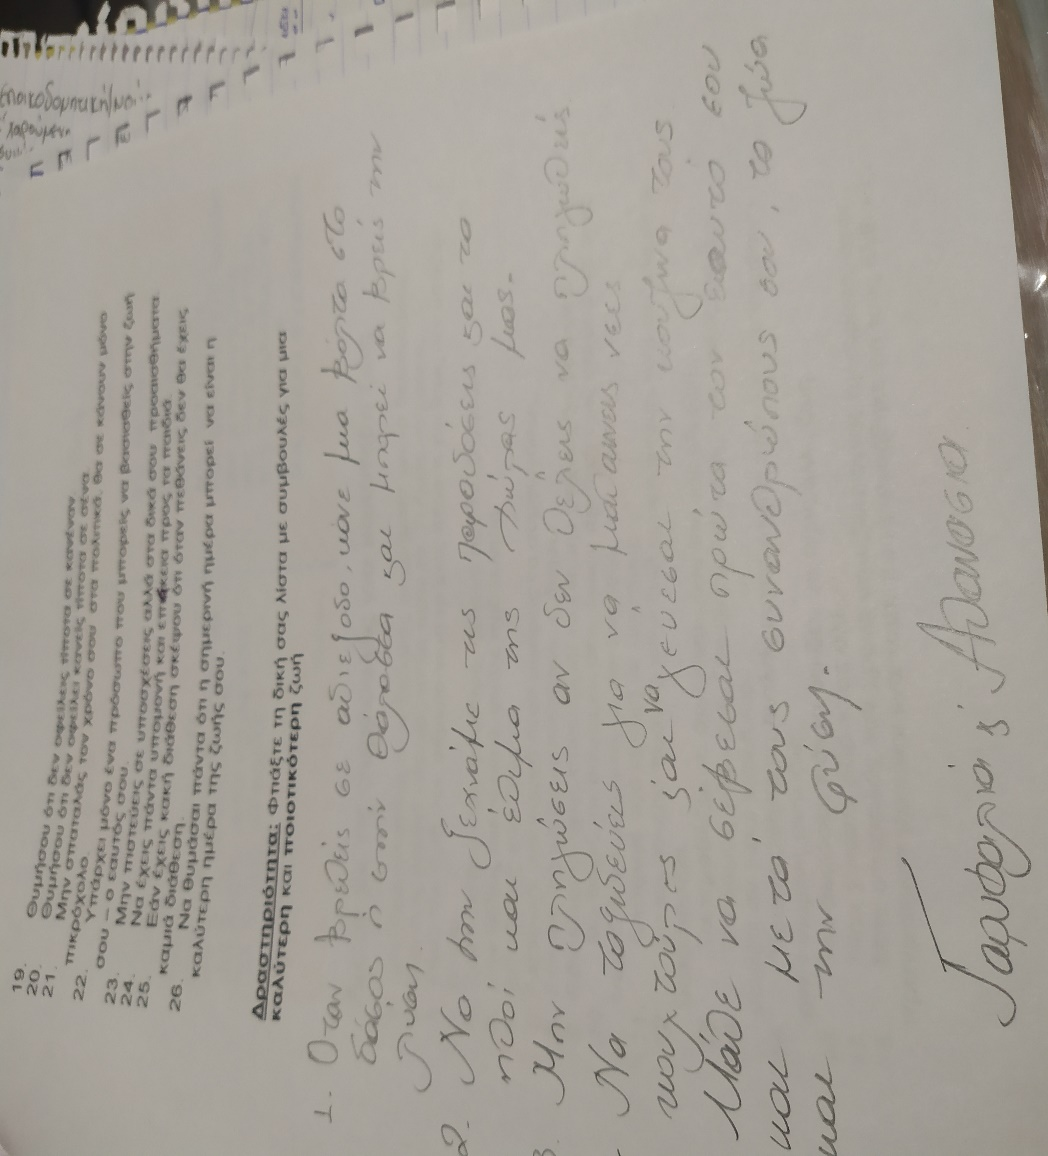 19. Θυμήσου ότι δεν οφείλεις τίποτα σε κανέναν
20. Θυμήσου ότι δεν οφείλει κανείς τίποτα σε σένα
21. Μην σπαταλάς τον χρόνο σου στα πολιτικά, θα σε κάνουν μόνο
πικρόχολο.
22. Υπάρχει μόνο ένα πρόσωπο που μπορείς να βασισθείς στην ζωή
σου – ο εαυτός σου.
23. Μην πιστεύεις σε υποσχέσεις αλλά στα δικά σου προαισθήματα
24. Να έχεις πάντα υπομονή και επιείκεια προς τα παιδιά
25. Εάν έχεις κακή διάθεση σκέψου ότι όταν πεθάνεις δεν θα έχεις
καμιά διάθεση.
26. Να θυμάσαι πάντα ότι η σημερινή ημέρα μπορεί να είναι η
καλύτερη ημέρα της ζωής σου.
Δραστηριότητα: Φτιάξτε τη δική σας λίστα με συμβουλές για μια
καλύτερη και ποιοτικότερη ζωή
1. Οταν βρεθείς σε αδιέξοδο, κάνε μια βόλτα στο
δάσος ή στην θάλασσα και μπορεί να βρείς την
λύση
2. Να μην ξεχνάμε τις παραδόσεις και το
ήθοι και έθιμα της χώρας μας.
3. Μην πληγώσεις αν δεν θέλεις να πληγωθείς
Να ταξιδεύεις για να μαθαίνεις νέες
κουλτούρες και να γεύεσαι την κουζίνα τους
Μάθε να σέβεσαι πρώτα τον εαυτό σου
και μετά τους συνανθρώπους σου, τα ζώα
και την φύση.
Γαρυφαλιά ς' Αθανασια